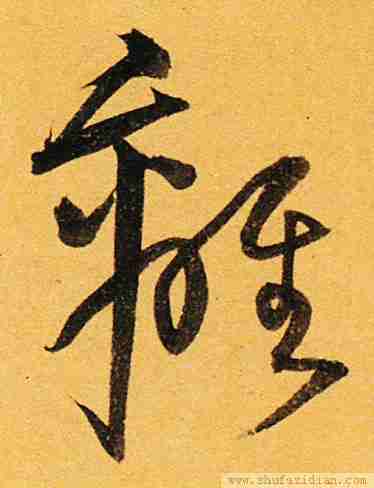 雜
www.shufazidian.com